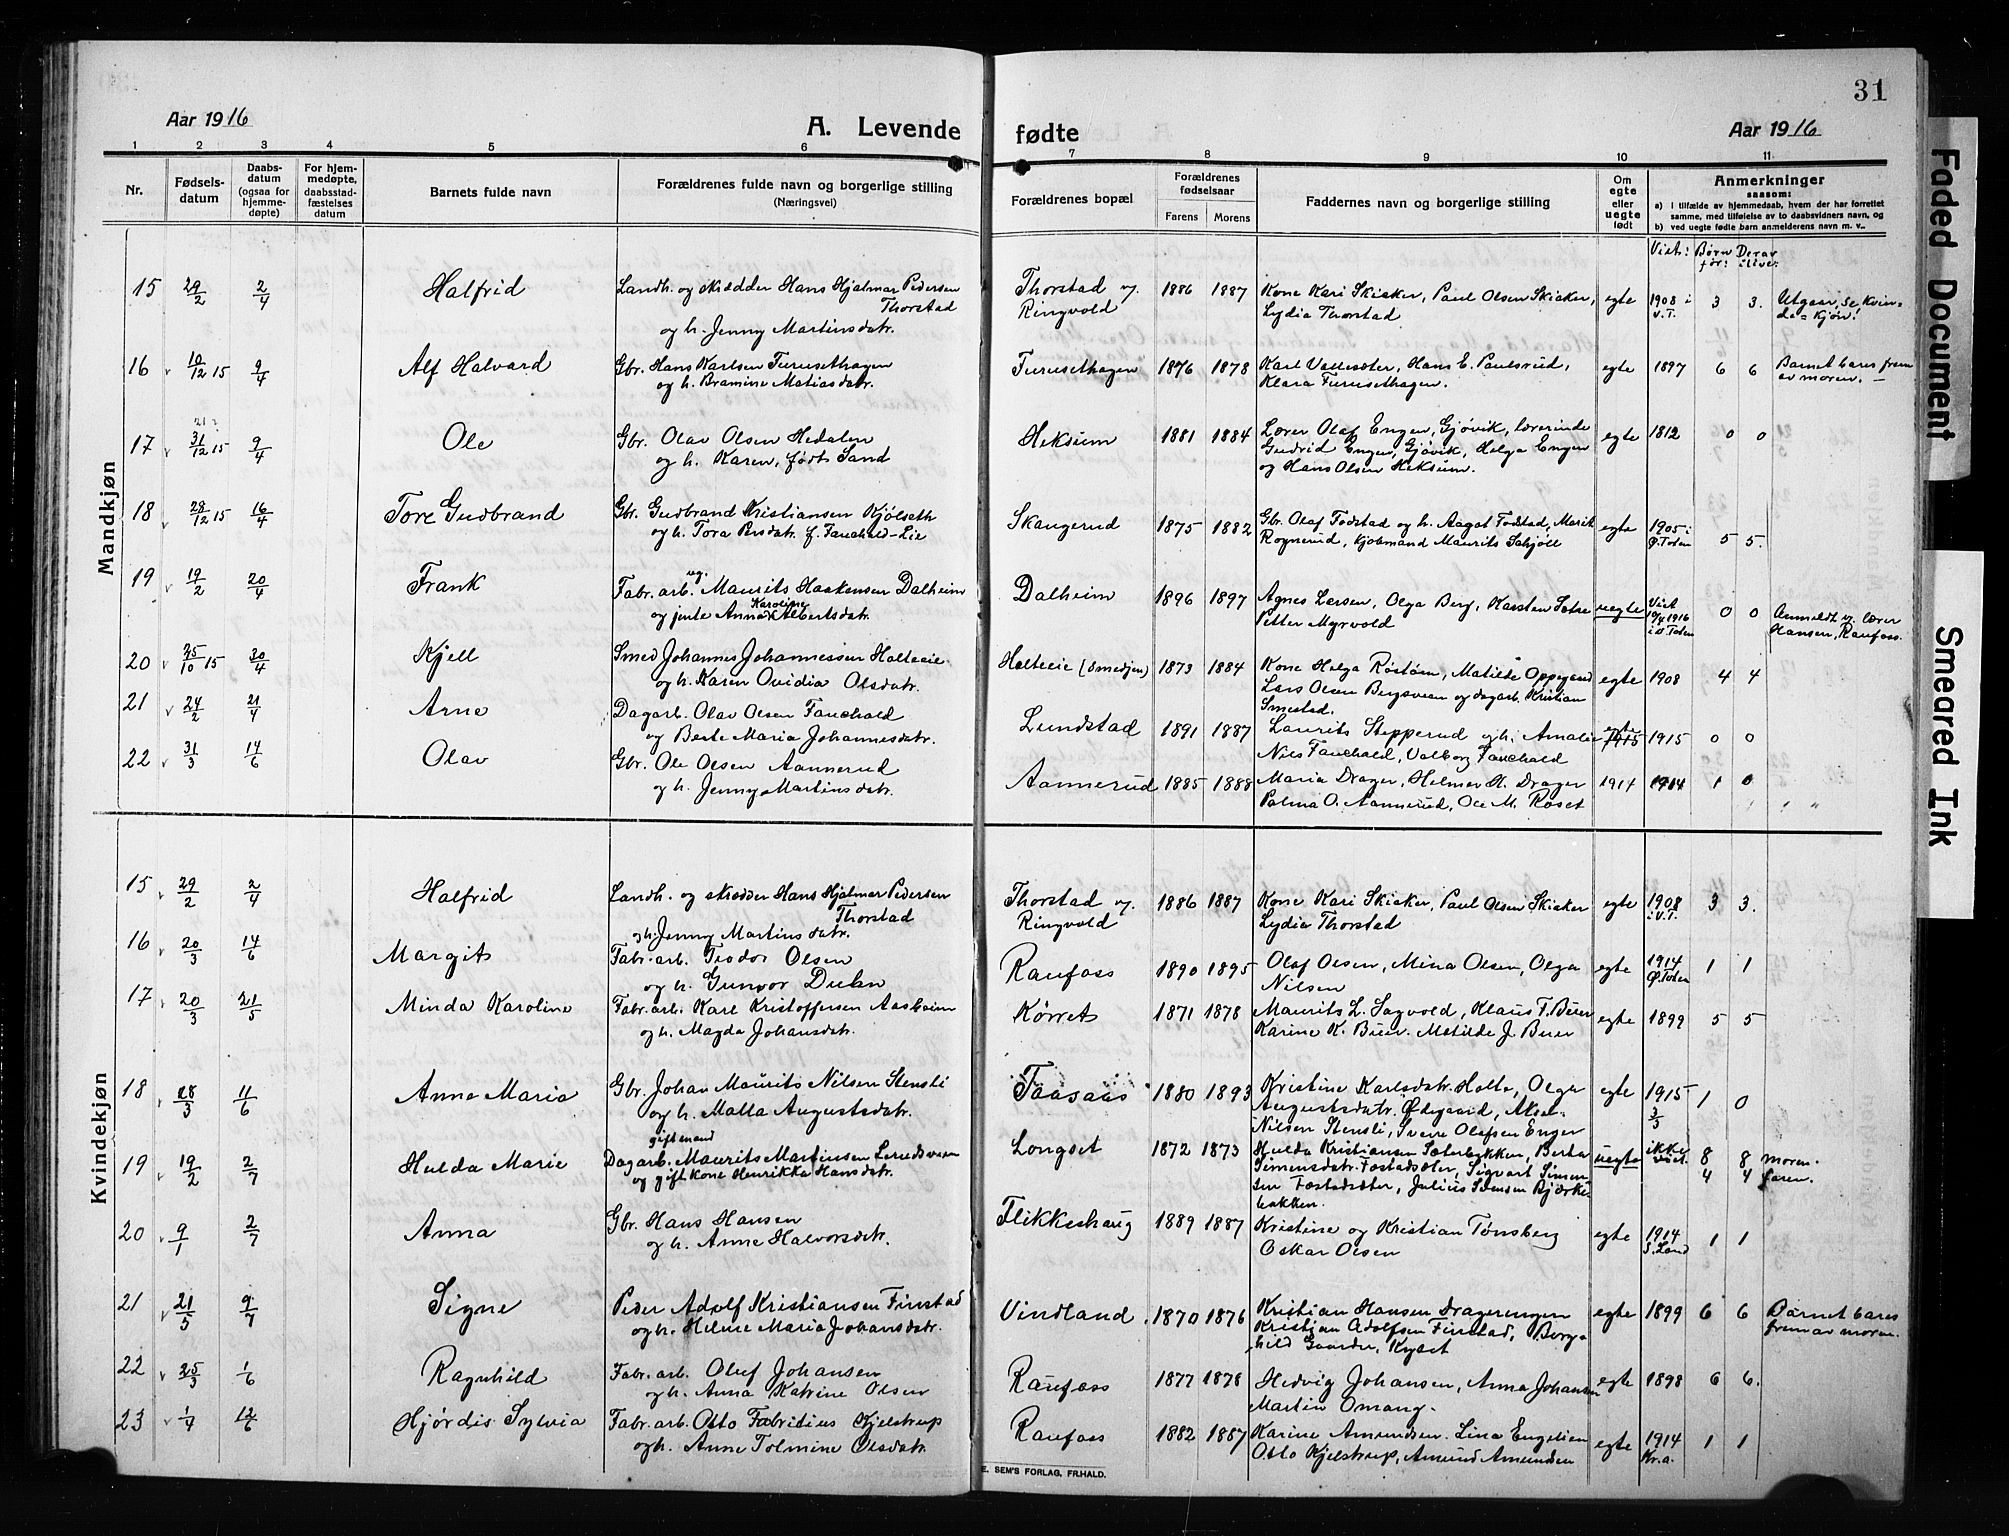 31
Aar 1916
A. Levende fødte
Aar 1916
1 2 3 4 5 6 7 8 9 10 11
Nr.
Fødsels-
datum
Daabs-
datum
(ogsaa for
hjemme-
døpte)
For hjem-
medøpte,
daabsstad-
fæstelses
datum
Barnets fulde navn
Forældrenes fulde navn og borgerlige stilling
(Næringsvei)
Forældrenes bopæl
Forældrenes
fødselsaar
Farens Morens
Faddernes navn og borgerlige stilling
Om
egte
eller
uegte
født
Anmerkninger
saasom:
a) i tilfælde av hjemmedaab, hvem der har forrettet
samme, med tilføielse av to daabsvidners navn, og
b) ved uegte fødte barn anmelderens navn m. v..
Viet: Børn Derav
før: ilive:
Mandkjøn
15 29/2 2/4 Halfrid Landh. og skrædder Hans Hjalmar Pedersen Thorstad v. 1886 1887 Kone Kari Skiaker, Paul Olsen Skiaker, egte 1908 i 3 3. Utgaar, se Kvin-
Thorstad Ringvold Lydia Thorstad V.T. de-kjøn!
og h. Jenny Martinsdatr.
16 10/12 15 9/4 Alf Halvard Gbr. Hans Karlsen Furusethagen Furusethagen 1876 1878 Karl Vallesæter, Hans E. Paulsrud, egte 1897 6 6 Barnet bares frem
og h. Bramine Matiasdatr. Klara Furusethagen. av moren. —
17 31/12 15 9/4 Ole Gbr. Olav Olsen Hedalen Heksum 1881 1884 Lærer Olaf Enger, Gjøvik, lærerinde egte 1812 0 0
og h. Karen, født Sand Gudrid Enger, Gjøvik, Helga Enger
og Hans Olsen Heksum.
18 28/12 15 16/4 Tore Gudbrand Gbr. Gudbrand Kristiansen Kjølseth Skangerud 1875 1882 Gbr. Olaf Fodstad og h. Aagot Fodstad, Marit egte 1905 i 5 5.
og h. Tora Persdatr. f. Fauchald-Lie Rognerud, kjøbmand Maurits Schjöll Ø. Toten
19 19/2 20/4 Frank Fabr. arb. ug. Maurits Haakensen Dalheim Dalheim 1896 1897 Agnes Larsen, Olga Berg, Karsten Sætre uegte Viet 0 0 Anmeldt v. lærer
og pike Anna Karoline Albertsdatr. Petter Myrvold 1916 Hansen, Raufoss.
20 25/10 15 30/4 Kjell Smed Johannes Johannessen Halteeie Halteeie (Smedjen) 1873 1884 Kone Helga Røstøm, Matilde Oppegaard egte 1908 4 4
og h. Karen Ovidia Olsdatr. Lars Olsen Bergsveen og dagarb. Kristian
Smestad.
21 24/2 21/4 Arne Dagarb. Olav Olsen Fauchald Lundstad 1891 1887 Laurits Stepperud og h. Amalie egte 1915 1915 0 0
og Beate Maria Johannesdatr. Nils Fauchald, Valborg Fauchald
22 31/3 14/6 Olav Gbr. Ole Olsen Aannerud Aannerud 1885 1888 Maria Drager, Helmer H. Drager 1914 1914 1 0
og h. Jenny Martinsdatr. Palma O. Aannerud, Ole M. Røset
Kvindekjøn
15 29/2 2/4 Halfrid Landh. og skrædder Hans Hjalmar Pedersen Thorstad v. 1886 1887 Kone Kari Skiaker, Paul Olsen Skiaker egte 1908 3 3.
Thorstad Ringvold Lydia Thorstad i V.T.
og h. Jenny Martinsdatr.
16 20/3 14/6 Margit Fabr. arb. Teodor Olsen Raufoss 1890 1895 Olaf Olsen, Mina Olsen, Olga egte 1914 1 1
og h. Gunvor Dulen Nilsen Ø. Toten
17 20/3 21/5 Minda Karoline Fabr. arb. Karl Kristoffersen Aasheim Körret 1871 1878 Maurits L. Sagvold, Klaus F. Buer egte 1899 5 5
og h. Magda Johansdatr. Karine K. Buer. Matilde J. Buer
18 28/3 11/6 Anne Maria Gbr. Johan Maurits Nilsen Stensli Faasaas 1880 1893 Kristine Karlsdatr. Holte, Olga egte 1915 1 0
og h. Malla Augustsdatr. Augustsdatr. Ødegaard, Aksel 3/3
Nilsen Stensli, Sverre Olafsen Enger
19 19/2 2/7 Hulda Marie gift mand Dagarb. Maurits Martinsen Lerudsveen Longset 1872 1873 Hulda Kristiansen Sæterbakken, Berta uegte ikke 8 8 moren.
og gift kone Henrikka Hansdatr. Simensdatr. Fostadsæter, Sigvart Simen- viet. 4 4 faren.
sen Fostadsæter, Julius Simensen Bjørke-
bakken.
20 9/1 2/7 Anna Gbr. Hans Hansen Flikkeshaug 1889 1887 Kristine og Kristian Tønsberg egte 1914 1 1
og h. Anne Halvorsdatr. Oskar Olsen S. Land
21 21/5 9/7 Signe Peder Adolf Kristiansen Finstad Vindland. 1870 1876 Kristian Hansen Drageringen egte 1899 6 6 Barnet bares
og h. Helene Maria Johansdatr. Kristian Adolfsen Finstad, Borg- frem av moren.
hild Gaarder, Kyset
22 25/3 1/6 Ragnhild Fabr. arb. Oluf Johansen Raufoss 1877 1878 Hedvig Johansen, Anna Johansen egte 1898 6 6.
og h. Anna Katrine Olsen Martin Omang.
23 1/4 12/6 Hjördis Sylvia Fabr. arb. Otto Fabritius Kjelstrup Raufoss 1882 1887 Karine Amundsen. Lina Engelien egte 1914 1 1
og h. Anne Tolmine Olsdatr. Otto Kjelstrup, Amund Amundsen Kr.a.
E. SEM'S FORLAG, FR.HALD.
Faded Document
Smeared Ink